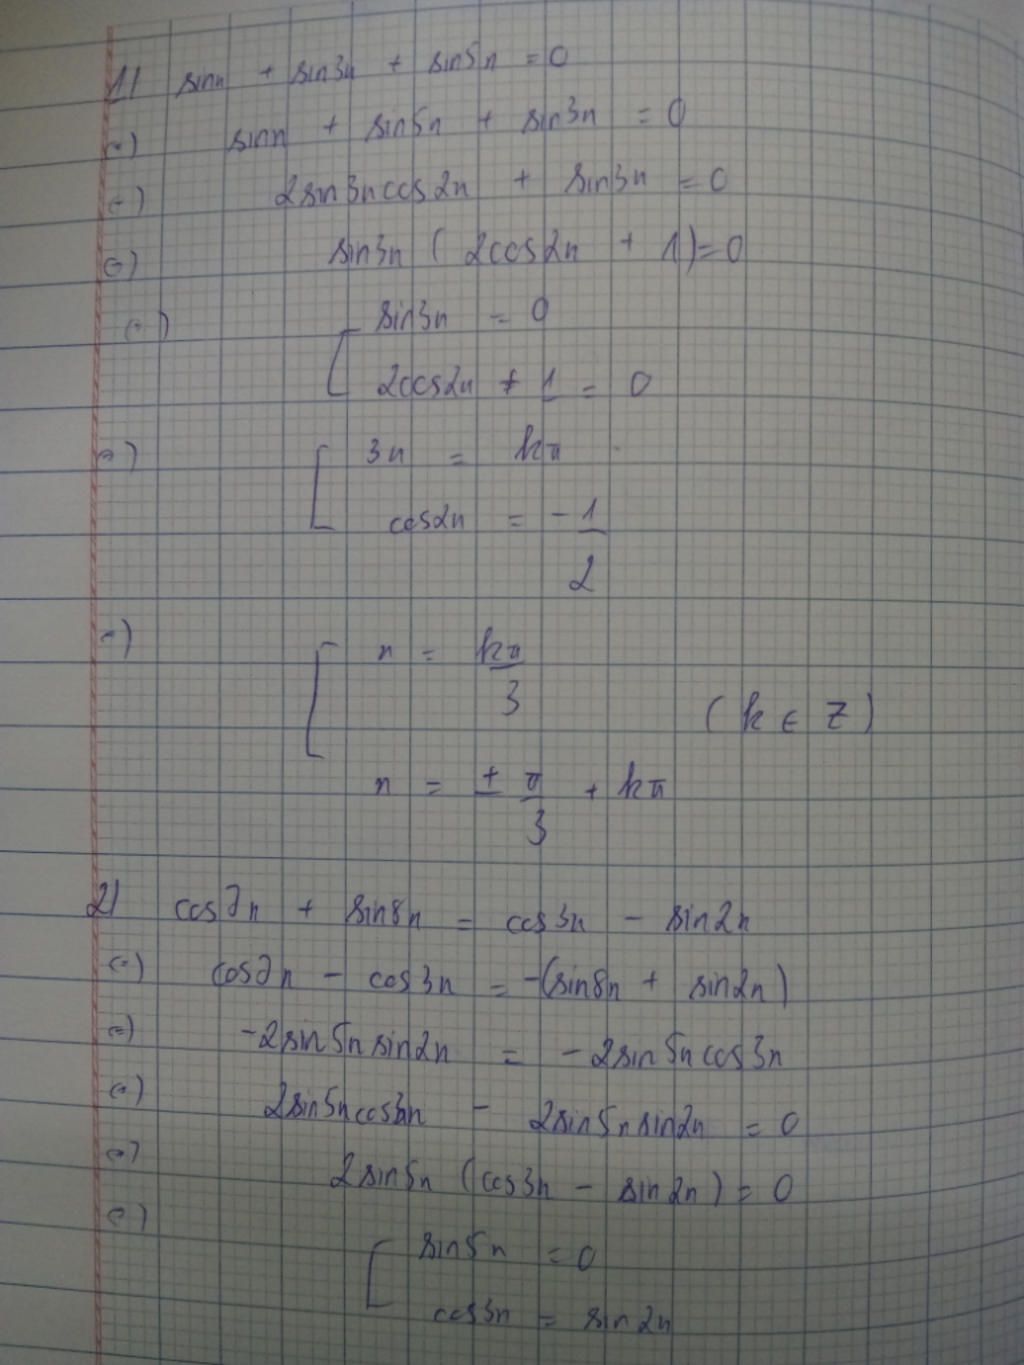 1) sinx + sin3x + sin5x = 0
(=) sinx + sin5x + sin3x = 0
(=) 2sin3xcos2x + sin3x = 0
(=) sin3x ( 2cos2x + 1) = 0
(=) [ sin3x = 0
2cos2x + 1 = 0
(=) [ 3x = kπ
cos2x = -1/2
(=) [ x = kπ/3
(k ∈ Z)
x = ± π/3 + kπ
2) cos7x + sin8x = cos3x - sin2x
(=) cos7x - cos3x = -(sin8x + sin2x)
(=) -2sin5xsin2x = -2sin5xcos3x
(=) 2sin5xcos3x - 2sin5xsin2x = 0
(=) 2sin5x (cos3x - sin2x) = 0
(=) [ sin5x = 0
cos3x = sin2x